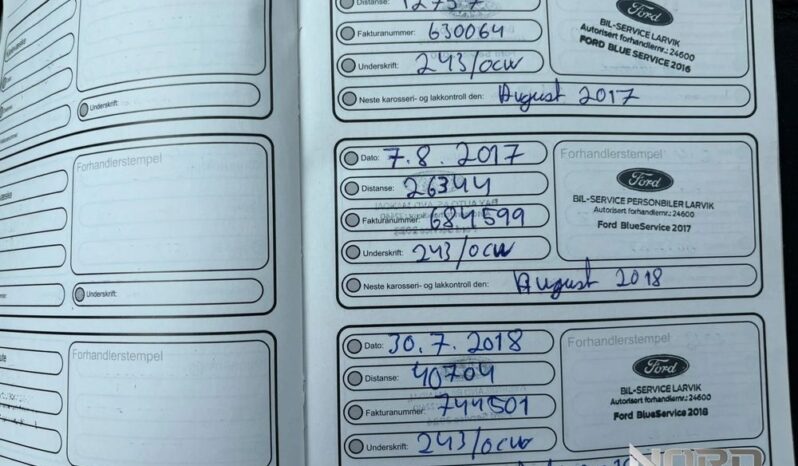 Distanse: 12757
Fakturanummer: 630064
Underskrift: 243/OCW
Neste karosseri- og lakkontroll den: August 2017
Ford
BIL-SERVICE LARVIK
Autorisert forhandlernr.: 24600
FORD BLUE SERVICE 2016
Underskrift:
Dato: 7.8.2017
Distanse: 26344
Fakturanummer: 684599
Underskrift: 243/OCW
Neste karosseri- og lakkontroll den: August 2018
Forhandlerstempel
Ford
BIL-SERVICE PERSONBILER LARVIK
Autorisert forhandlernr.: 24600
Ford BlueService 2017
Forhandlerstempel
Underskrift:
Dato: 30.7.2018
Distanse: 40704
Fakturanummer: 744501
Underskrift: 243/OCW
Forhandlerstempel
Ford
BIL-SERVICE LARVIK
Autorisert forhandlernr.: 24600
Ford BlueService 2018
Forhandlerstempel
NORD